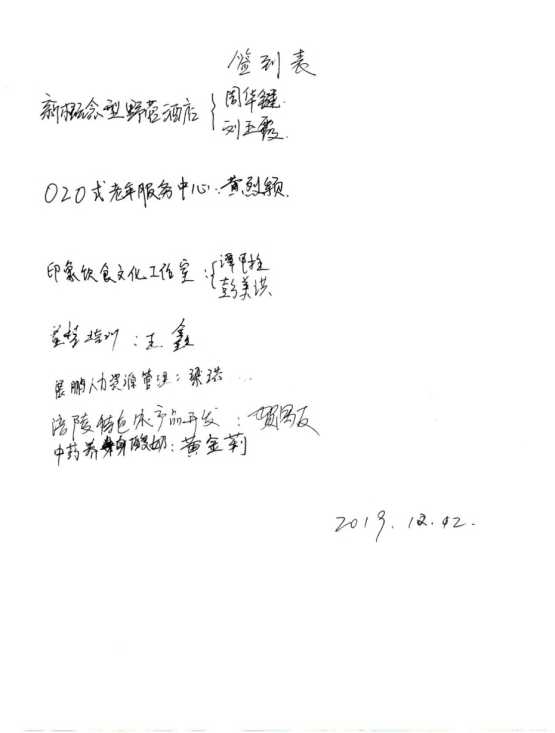 签到表
新概念型野营酒店 { 周华键
刘玉霞
O2O式老年服务中心: 黄烈颖
印象饮食文化工作室: { 谭
彭美洪
培训: 王鑫
展鹏人力资源管理: 梁洪
涪陵特色农产品开发: 贺
中药养身酸奶: 黄金莉
2019.12.02.